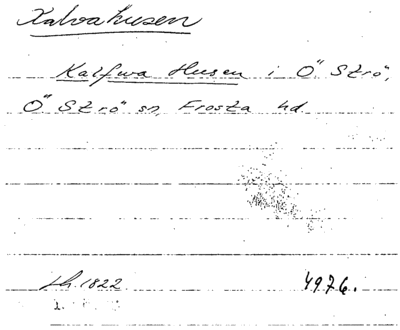 Kalvahusen
Kalfwa Husen i Ö" Strö,
Ö" Strö" sn, Frosta hd.
lh. 1822 4976.
1.